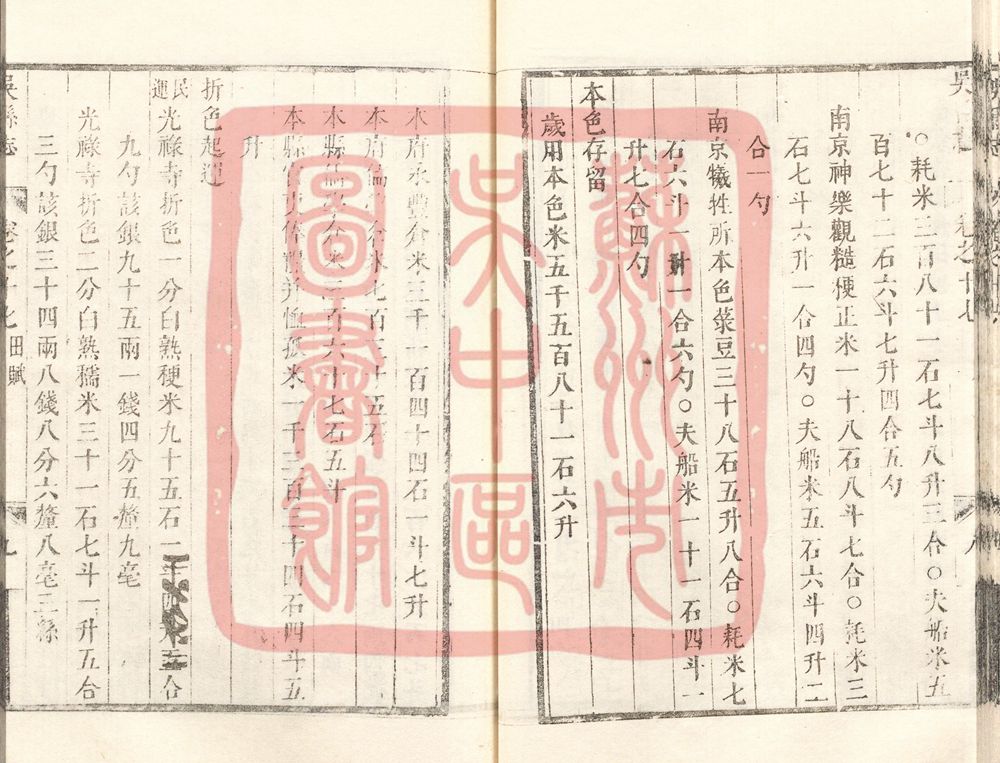 ○耗米三百八十一石七斗八升三合○夫船米五
百七十二石六斗七升四合五勺
南京神樂觀糙粳正米一十八石八斗七合○耗米三
石七斗六升一合四勺○夫船米五石六斗四升二
合一勺
南京犧牲所本色菉豆三十八石五升八合○耗米七
石六斗一升一合六勺○夫船米一十一石四斗一
升七合四勺
本色存留
歲用本色米五千五百八十一石六升
本府永豐倉米三千一百四十四石一斗七升
本府儒學倉米七百五十五石
本縣儒學倉米三百六十七石五斗
本縣官吏俸糧并恤孤米一千三百二十四石四斗五
升
折色起運
民運光祿寺折色一分白熟粳米九十五石一斗四升五合
九勺該銀九十五兩一錢四分五釐九毫
光祿寺折色二分白熟糯米三十一石七斗一升五合
三勺該銀三十四兩八錢八分六釐八毫三絲
吳縣志
卷之十七 田賦
九
蘇州市
吳中區
圖書館